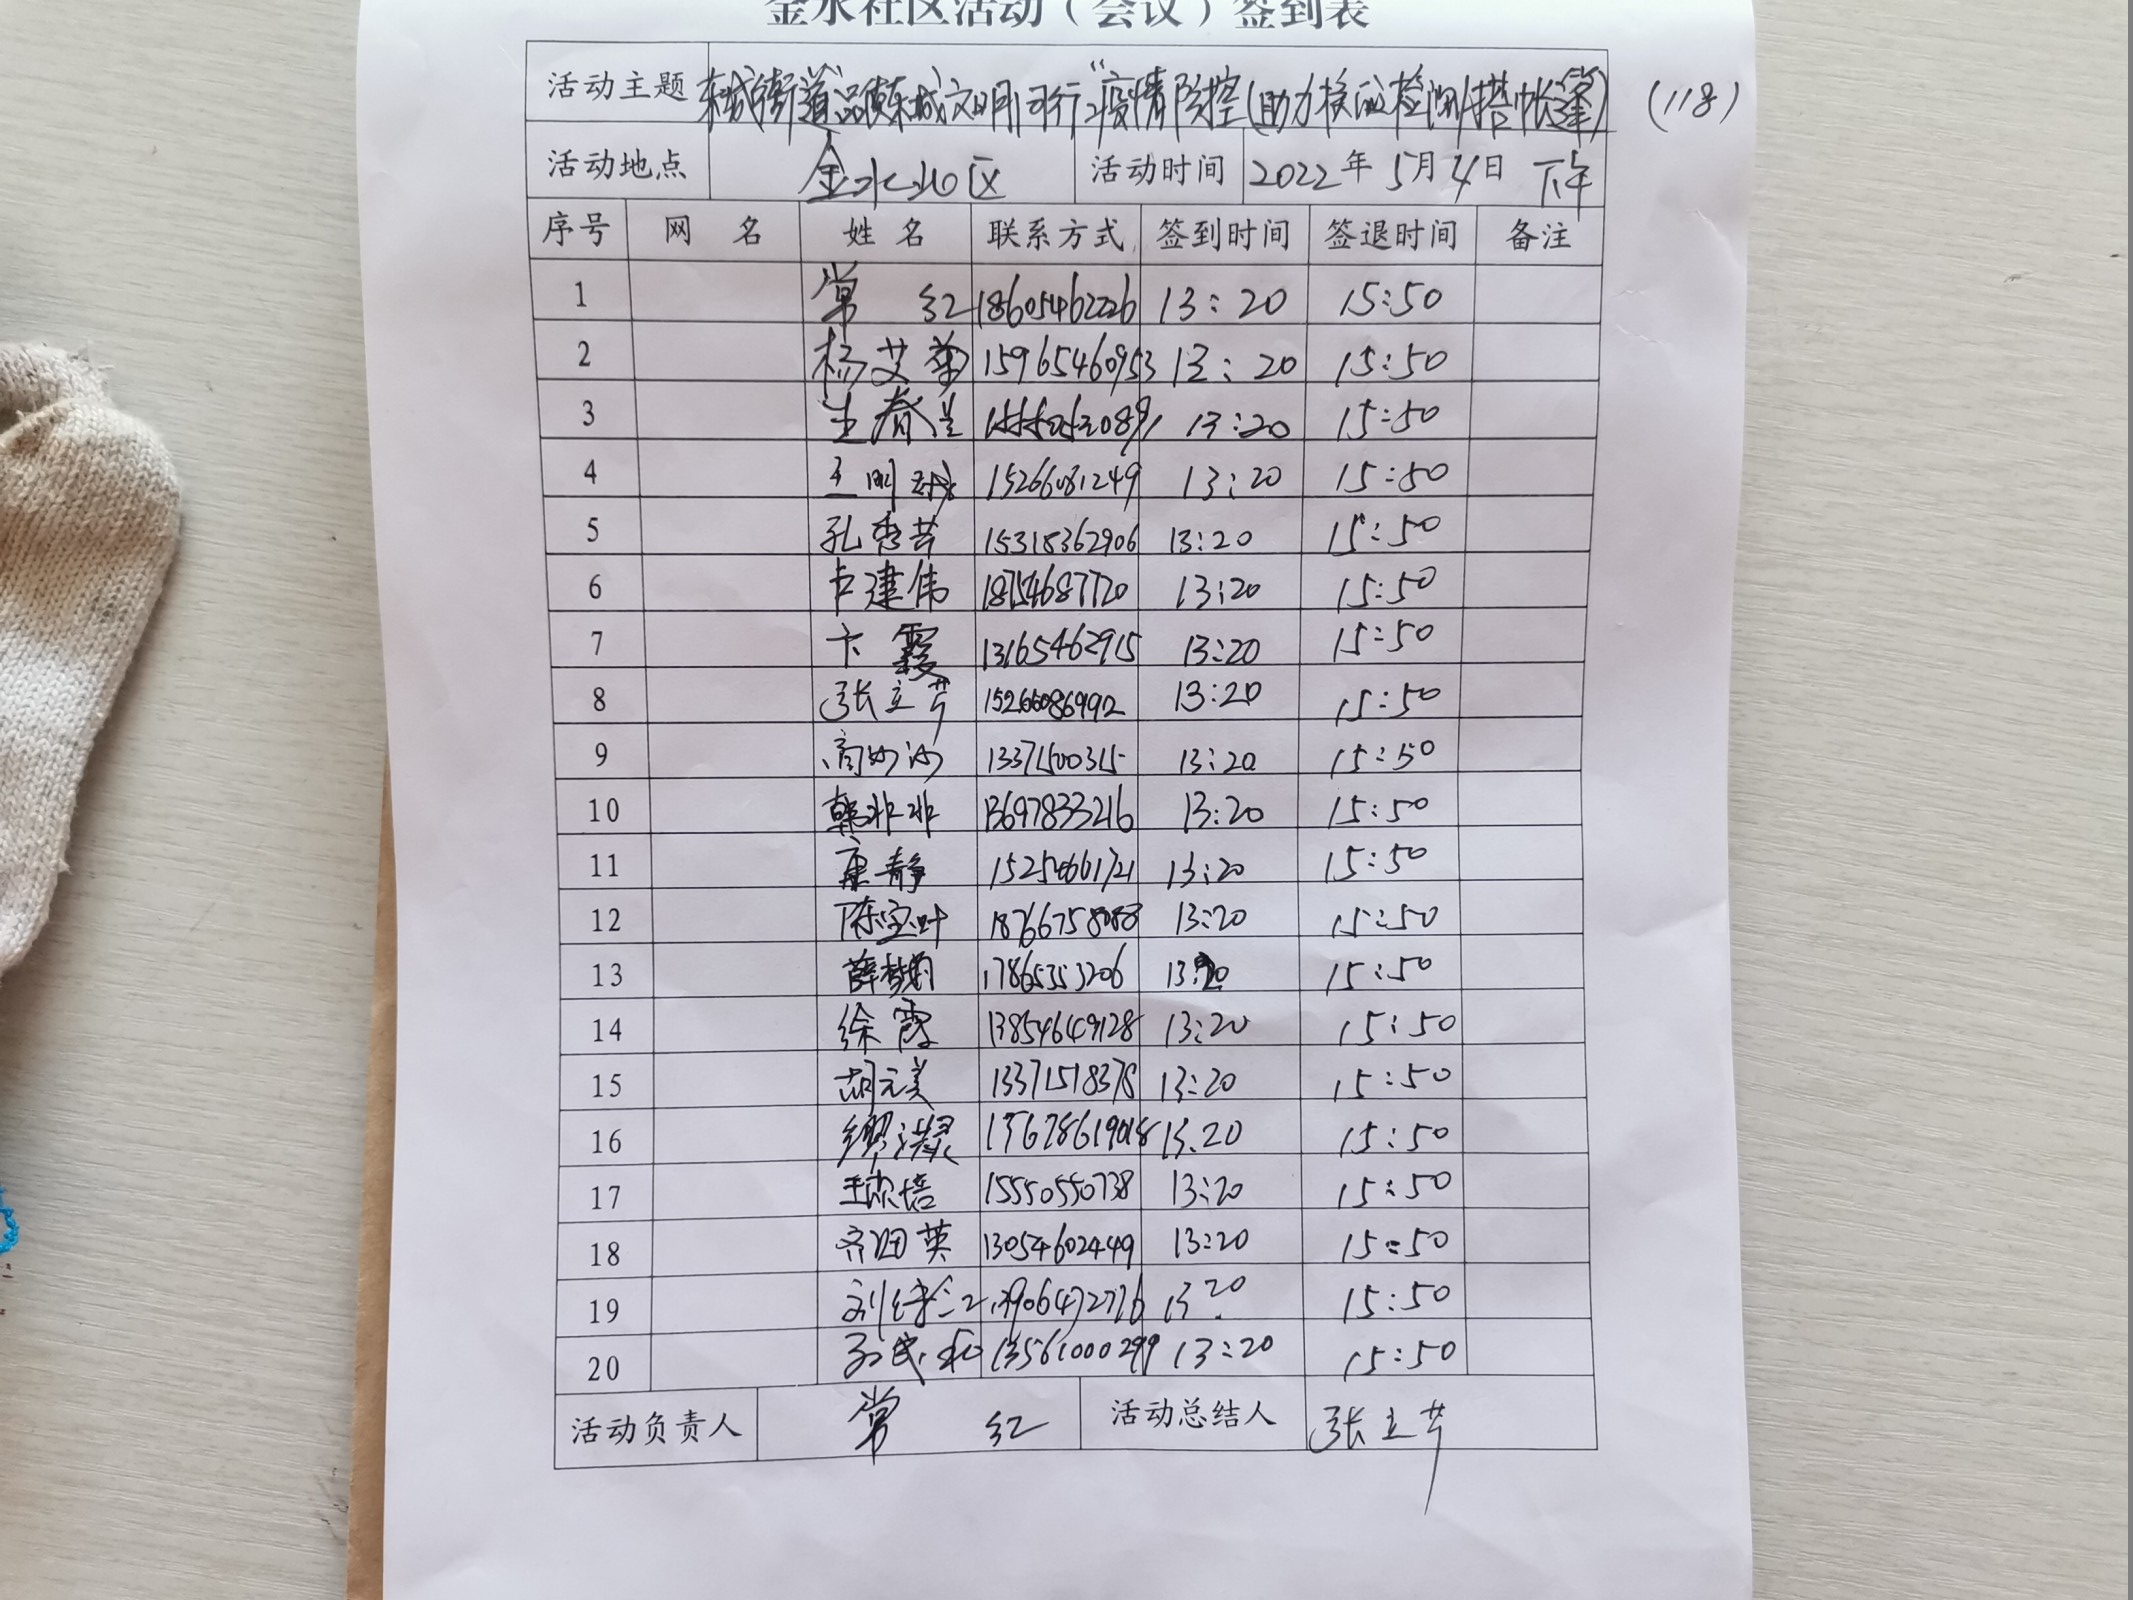 金水社区活动（会议）签到表
活动主题 东城街道"品质东城文明同行"疫情防控(助力核酸检测搭帐篷) (118)
活动地点 金水北区 活动时间 2022年5月4日 下午
序号 网 名 姓 名 联系方式 签到时间 签退时间 备注
1 常 红 18605462226 13:20 15:50
2 杨艾菊 15965460953 13:20 15:50
3 王春兰 13:20 15:50
4 王明 15266081249 13:20 15:50
5 孔秀芹 15315362906 13:20 15:50
6 卞建伟 18754687720 13:20 15:50
7 卞霞 13165462915 13:20 15:50
8 张立芹 15266086992 13:20 15:50
9 商沙沙 13371500315 13:20 15:50
10 韩非非 13697833216 13:20 15:50
11 康静 15254661721 13:20 15:50
12 陈宝叶 18766758088 13:20 15:50
13 薛梦 17865353206 13:20 15:50
14 徐霞 13854649128 13:20 15:50
15 胡元美 13371518378 13:20 15:50
16 缪 13:20 15:50
17 王 15550550738 13:20 15:50
18 齐田英 13054602449 13:20 15:50
19 刘 13906472776 13:20 15:50
20 孙民和 13561000299 13:20 15:50
活动负责人 常 红 活动总结人 张立芹